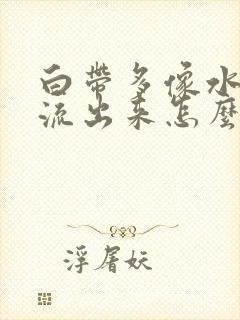 白带多像水
流出来怎麽
浮屠妖